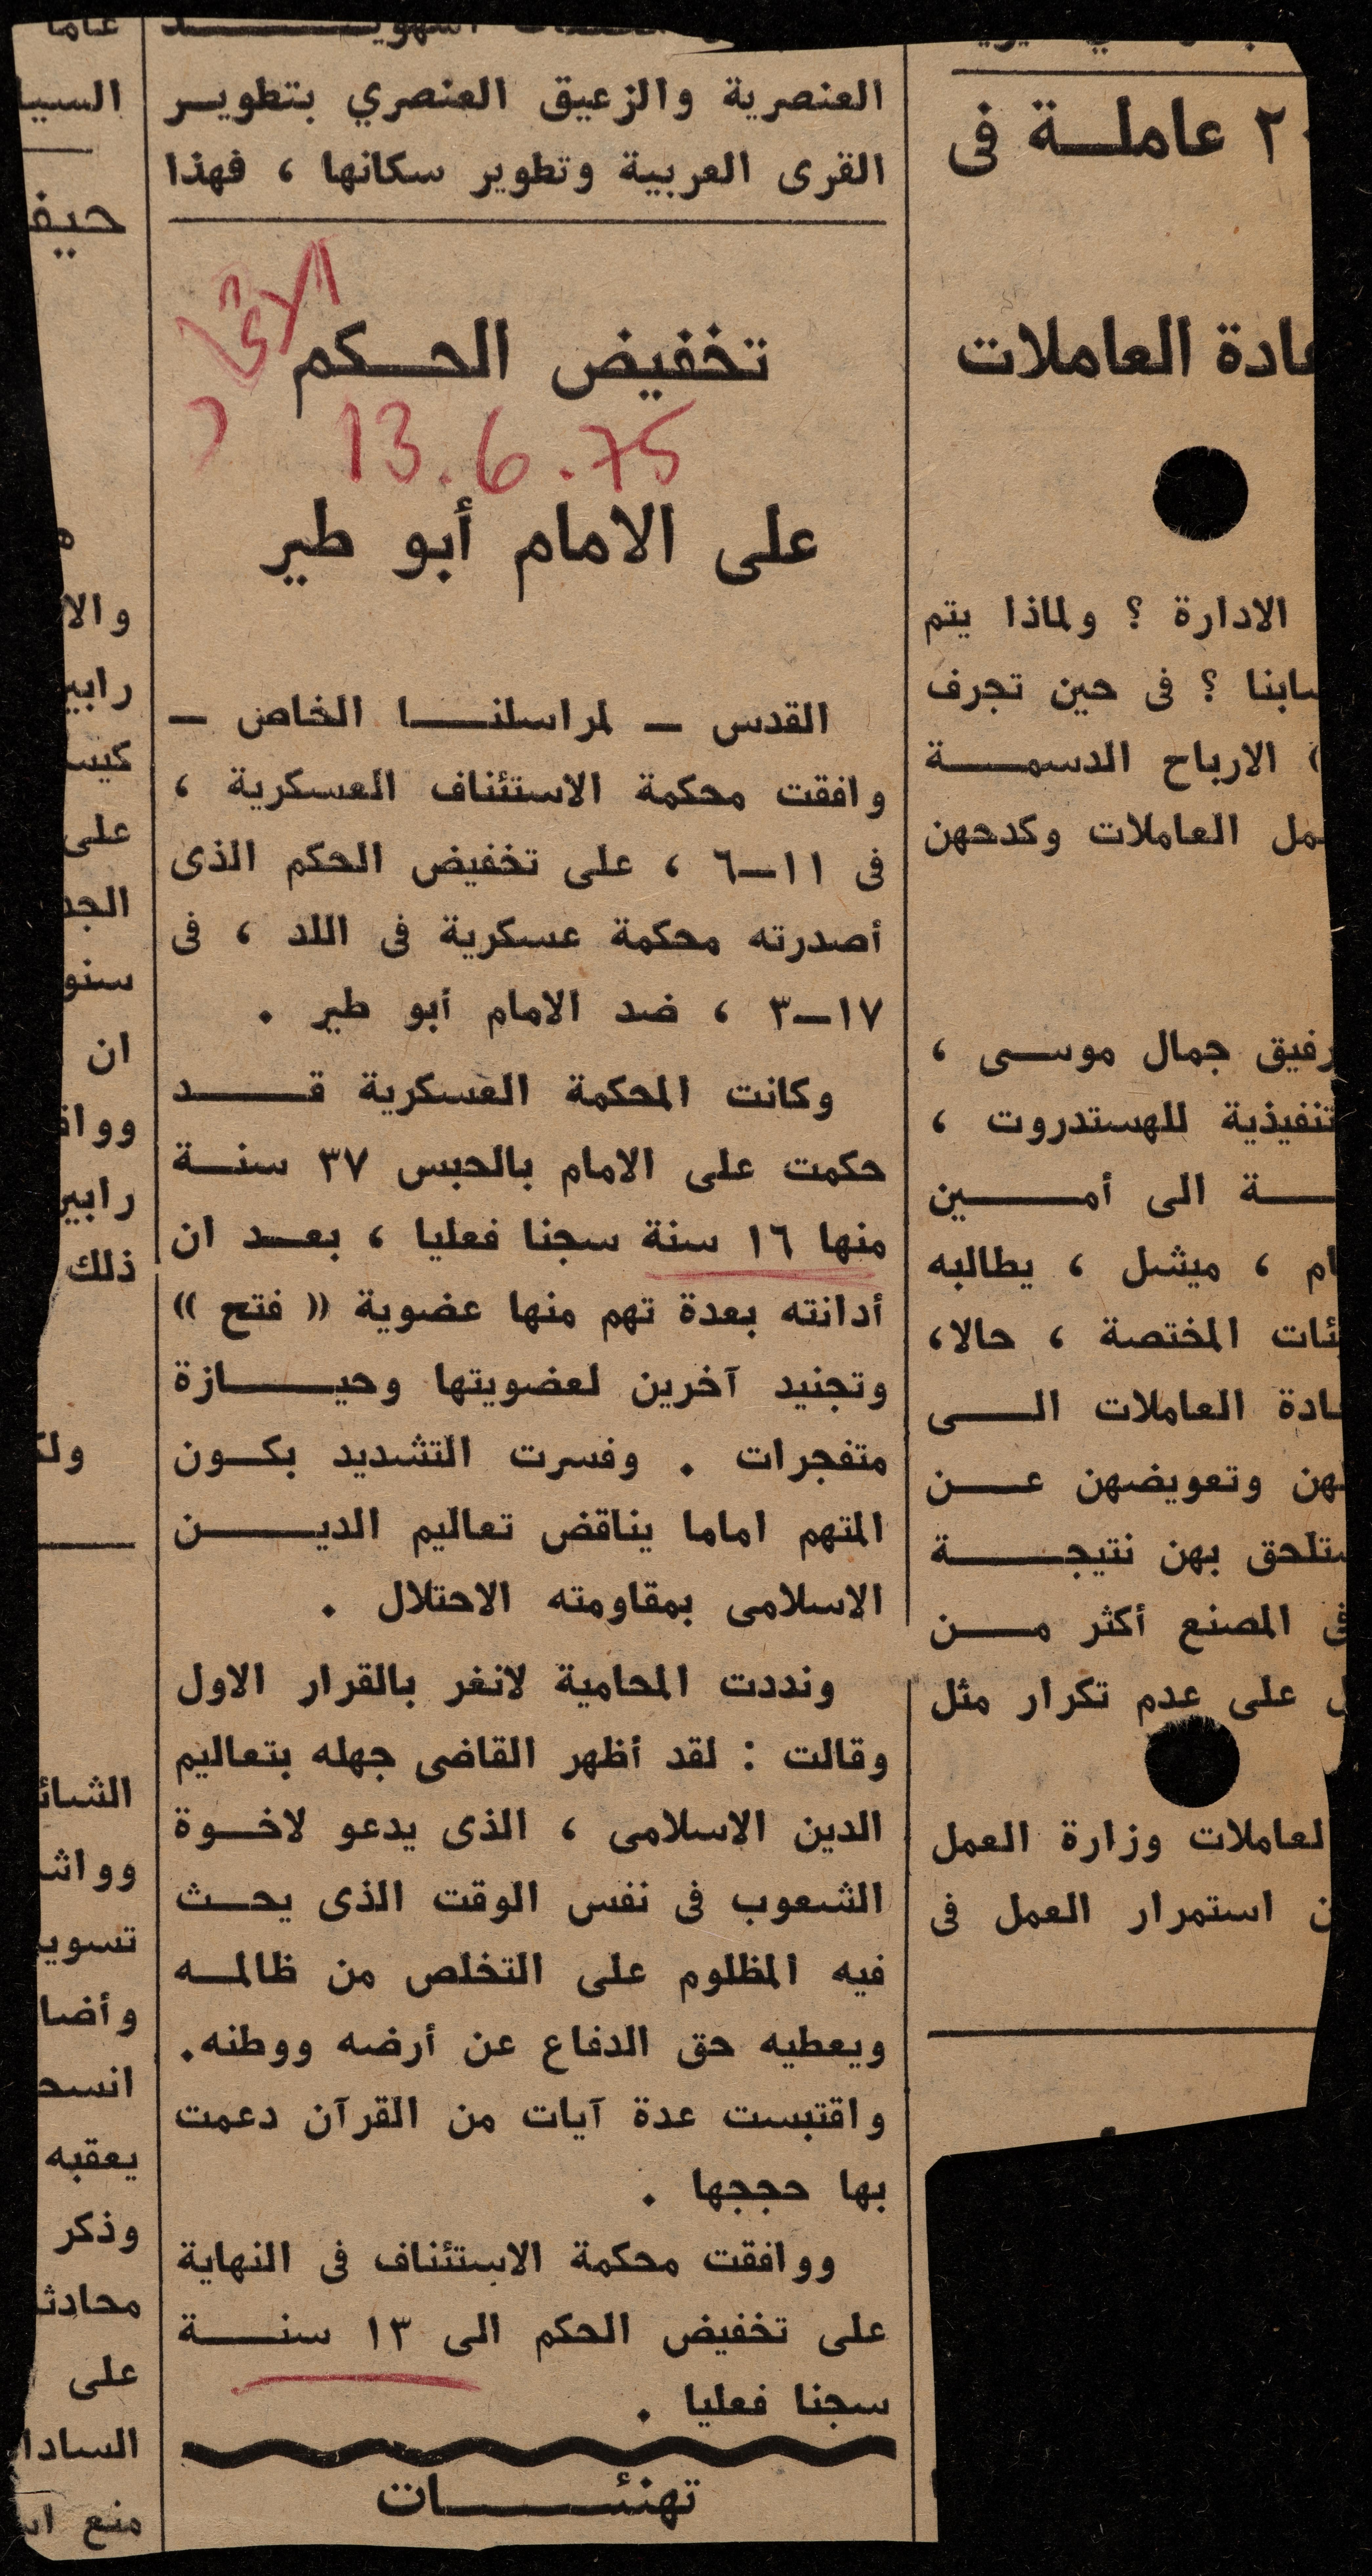 ٢ عاملة فى
عادة العاملات
الادارة ؟ ولماذا يتم
سابنا ؟ فى حين تجرف
الارباح الدسمة
العاملات وكدحهن
رفيق جمال موسى ،
تنفيذية للهستدروت ،
ة الى أمين
ام ، ميشل ، يطالبه
ئات المختصة ، حالا،
ادة العاملات الى
هن وتعويضهن عن
ستلحق بهن نتيجة
فى المصنع أكثر من
ل على عدم تكرار مثل
العاملات وزارة العمل
ن استمرار العمل فى
العنصرية والزعيق العنصري بتطوير
القرى العربية وتطوير سكانها ، فهذا
تخفيض الحكم
13.6.75
على الامام أبو طير
القدس — لمراسلنا الخاص —
وافقت محكمة الاستئناف العسكرية ،
فى ١١—٦ ، على تخفيض الحكم الذى
أصدرته محكمة عسكرية فى اللد ، فى
١٧—٣ ، ضد الامام أبو طير .
وكانت المحكمة العسكرية قد
حكمت على الامام بالحبس ٣٧ سنة
منها ١٦ سنة سجنا فعليا ، بعد ان
أدانته بعدة تهم منها عضوية « فتح »
وتجنيد آخرين لعضويتها وحيازة
متفجرات . وفسرت التشديد بكون
المتهم اماما يناقض تعاليم الدين
الاسلامى بمقاومته الاحتلال .
ونددت المحامية لانغر بالقرار الاول
وقالت : لقد أظهر القاضى جهله بتعاليم
الدين الاسلامى ، الذى يدعو لاخوة
الشعوب فى نفس الوقت الذى يحث
فيه المظلوم على التخلص من ظالمه
ويعطيه حق الدفاع عن أرضه ووطنه.
واقتبست عدة آيات من القرآن دعمت
بها حججها .
ووافقت محكمة الاستئناف فى النهاية
على تخفيض الحكم الى ١٣ سنة
سجنا فعليا .
تهنئات
عاما
السيا
حيف
والا
رابير
كيس
على
الجد
سنو
ان
وواف
رابير
ذلك
ولك
الشائ
وواش
تسوي
وأضا
انسح
يعقبه
وذكر
محادث
على
السادا
منع اس